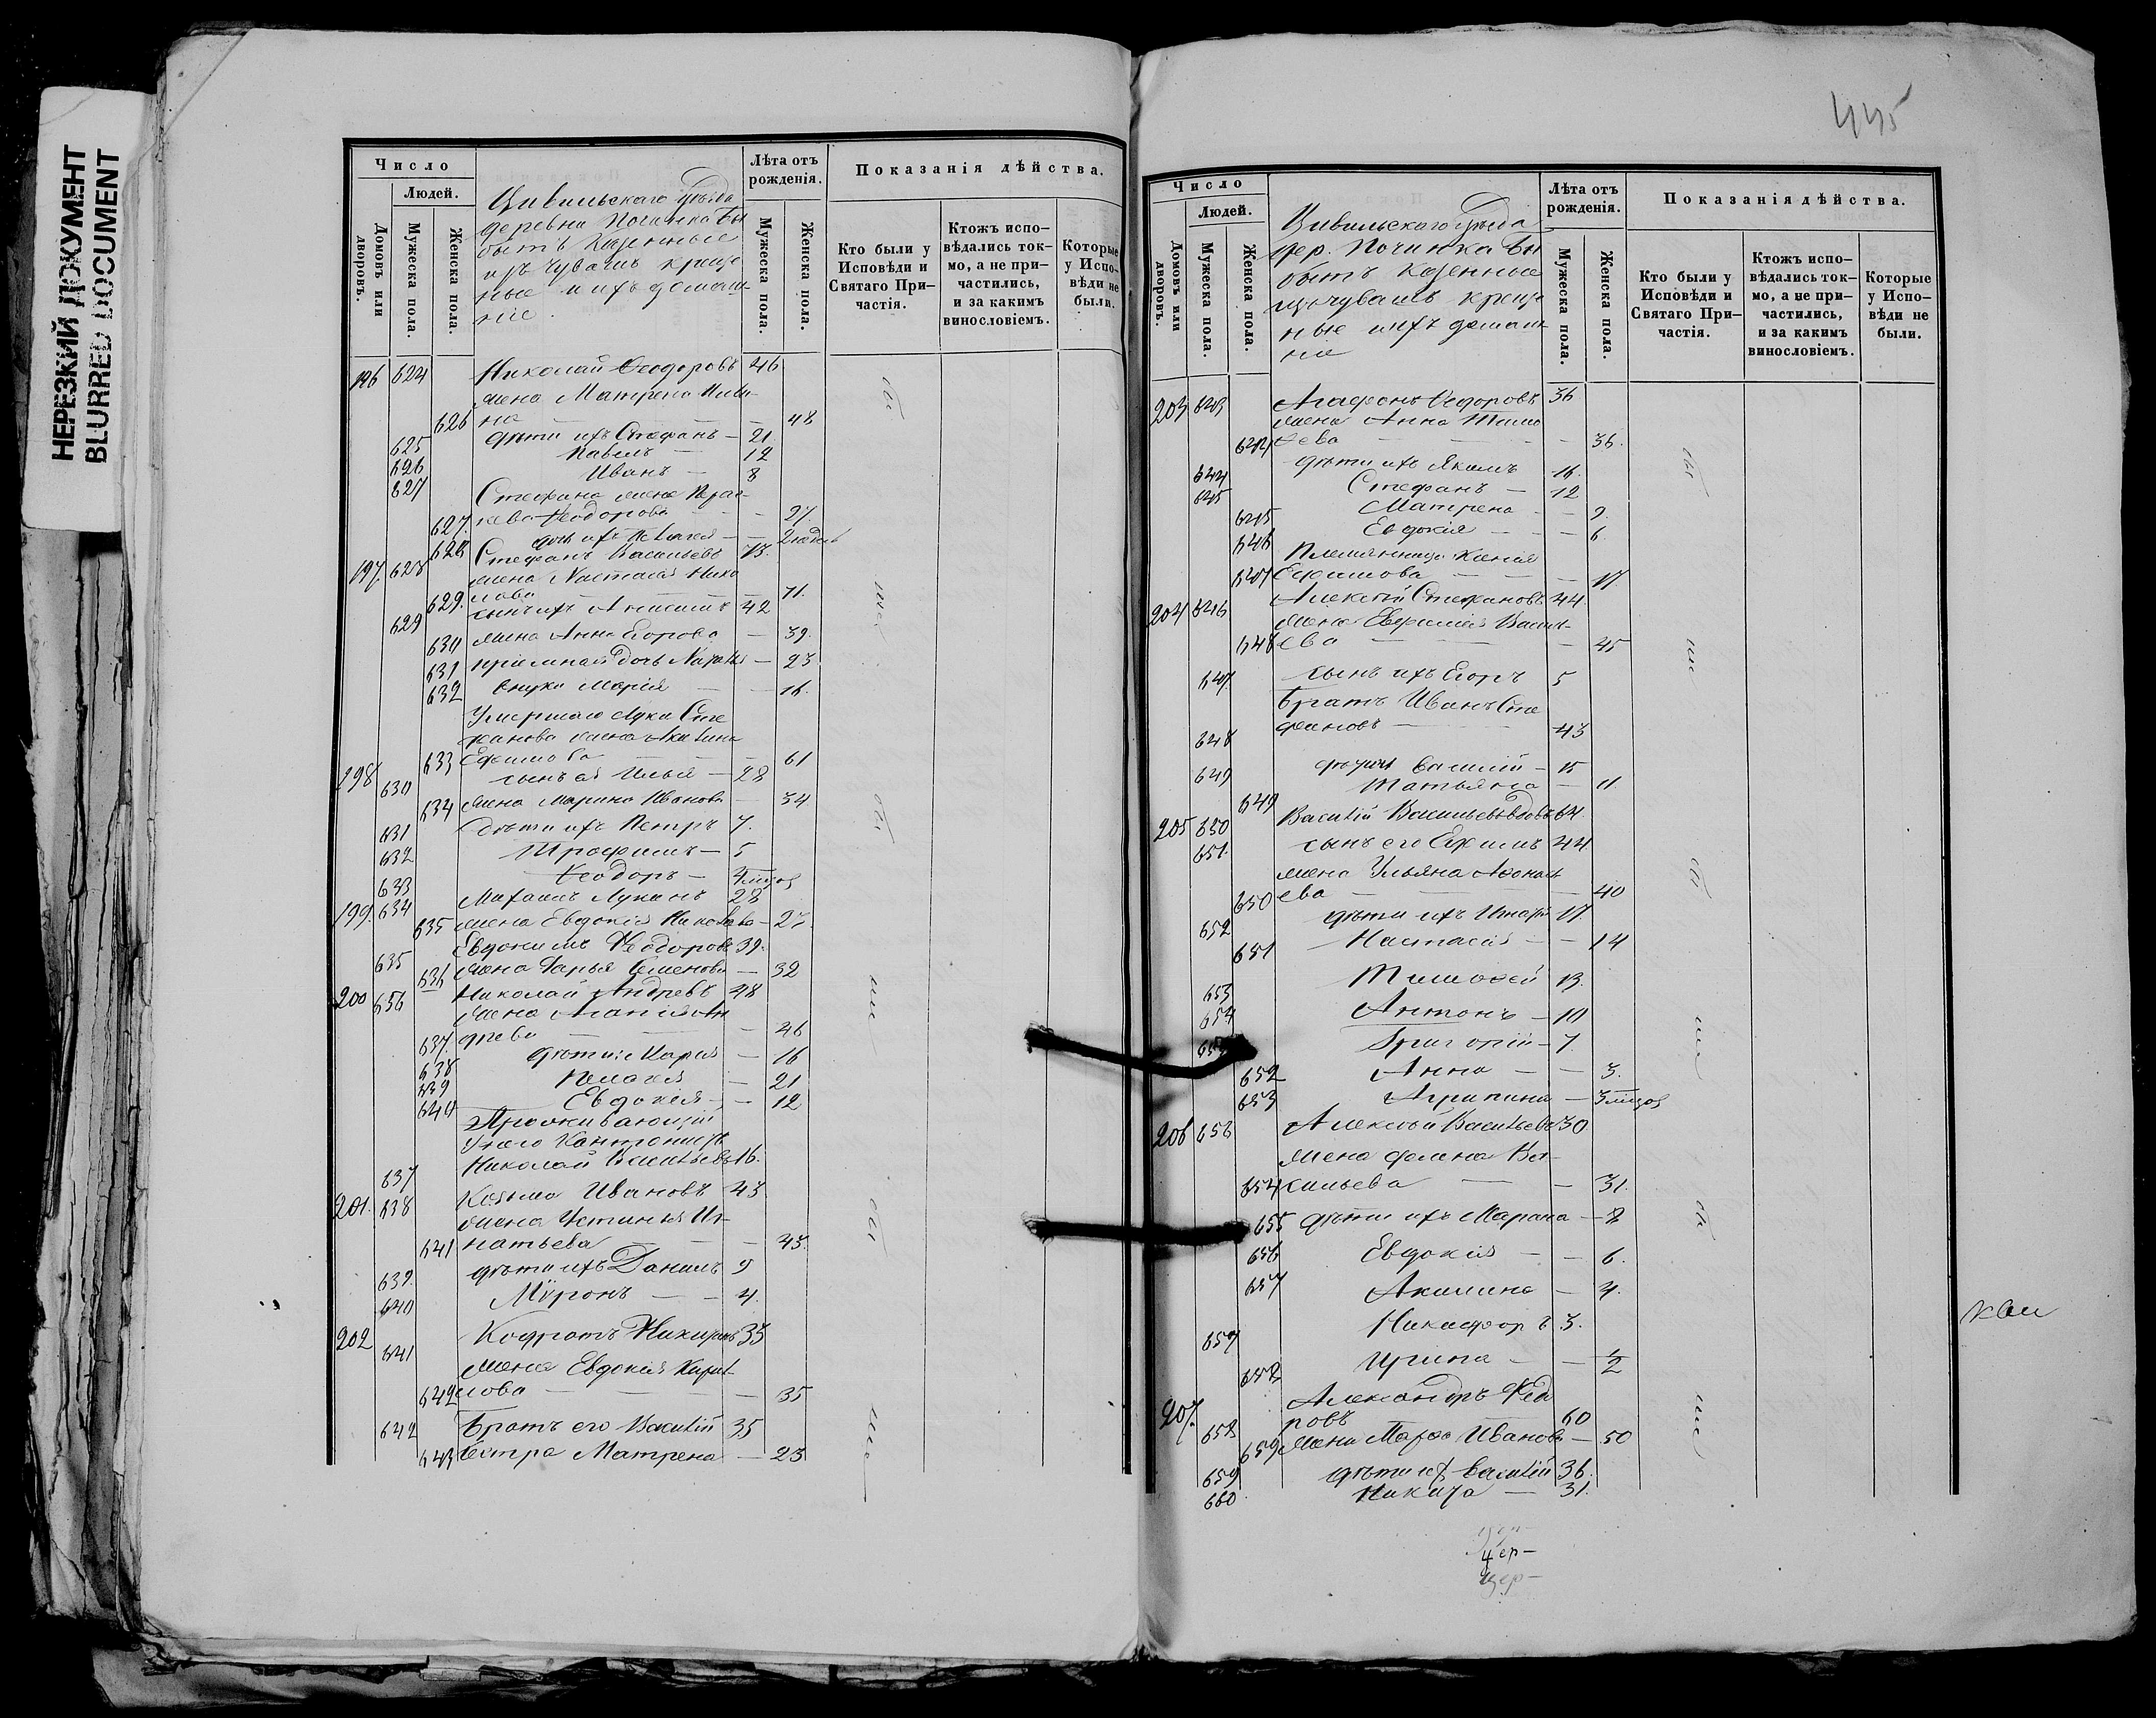 НЕРЕЗКИЙ ДОКУМЕНТ
BLURRED DOCUMENT
Число
Людей.
Домовъ или дворовъ.
Мужеска пола.
Женска пола.
Цивильскаго Уѣзда
деревна Починка Бы
бытъ Казенные
изъ Чувашъ креще
ные и ихъ домаш
ніе.
Лѣта отъ рожденія.
Мужеска пола.
Женска пола.
Показанія дѣйства.
Кто были у Исповѣди и Святаго При–частія.
Ктожъ испо–вѣдались ток–мо, а не при–частились, и за какимъ винословіемъ.
Которые у Испо–вѣди не были.
196 624 Николай Ѳеодоровъ 46
жена Матрена
626 на — 48
625 дѣти ихъ Стефанъ — 21
626 Павелъ — 12
627 Иванъ — 8
Стефана жена Парас
627. кева Ѳеодорова — 27.
628 дочь ихъ Пелагея —
197. 628 Стефанъ Васильевъ 73.
жена Настасія Нико
629. лаева — 71.
629 сынъ ихъ Анисимъ 42
630 жена Анна Егорова — 39.
631 пріемная дочь — 23
632 внука Марія — 16.
Умершаго Луки Сте
фанова жена Акилина
633 Ефимова — 61
198 630 сынъ ея Илья — 28
634 жена Марина Иванова — 34
631 Дѣти ихъ Петръ 7.
632 Трофимъ — 5
633 Ѳеодоръ —
199. 634 Михаилъ Лукинъ 28
635 жена Евдокія — 27
635 Евдокимъ Ѳеодоровъ 39.
636 жена Дарья Семенова — 32
200 636 Николай Андреевъ 48
жена Агапія Ан
637. дреева — 46
638 дѣти: Марія — 16
639 Пелагея — 21
640 Евдокія — 12
Проживающій
у него Кантонистъ
637 Николай Васильевъ 16.
201. 638 Козьма Ивановъ 43
жена Устинья Иг–
641 натьева — 43.
639. дѣти ихъ Данилъ 9
640 Миронъ — 4.
202 641 Кодратъ 33
жена Евдокія Кирил
642 лова — 35
642 Братъ его Василій 35
643 Сестра Матрена — 23
445
Число
Людей.
Домовъ или дворовъ.
Мужеска пола.
Женска пола.
Цивильскаго Уѣзда
дер. Починка Бы
бытъ Казенные
изъ чувашъ креще
ные и ихъ домаш
ніе
Лѣта отъ рожденія.
Мужеска пола.
Женска пола.
Показанія дѣйства.
Кто были у Исповѣди и Святаго При–частія.
Ктожъ испо–вѣдались ток–мо, а не при–частились, и за какимъ винословіемъ.
Которые у Испо–вѣди не были.
203 643 Агафонъ Ѳедоровъ 36
жена Анна Тимо
644 ѳеева — 36.
644 дѣти ихъ Якимъ 16.
645 Стефанъ — 12
645 Матрена — 9.
646 Евдокія — 6
Племянница Ксенія
647 Ефимова — 17.
204 646 Алексѣй Стефановъ 44.
жена Евфимія Василь
648 ева — 45
647. сынъ ихъ Егоръ 5
Братъ Иванъ Сте
648 фановъ — 43
649 дѣти Василій — 15
649 Татьяна — 11.
205 650 Василій Васильевъ вдовъ 64.
651. сынъ его Ефимъ 44.
жена Ульяна Аѳонась
650 ева — 40
652 дѣти ихъ Игнатій 17
651 Настасія — 14
653 Тимоѳей 13.
654 Антонъ — 10
655 Григорій — 7.
652 Анна — 3.
653 Агрипина —
206 656 Алексѣй Васильевъ 30
жена Фелина Ва–
654 сильева — 31.
655 дѣти ихъ Марина — 8
656 Евдокія — 6.
657 Акилина — 4.
657 Никифоръ 3.
658 Ирина — 1/2
207. Александръ Ѳедо
658 ровъ 60
659 жена Марѳа Иванова — 50
659 дѣти ихъ Василій 36.
660 Никита — 31.